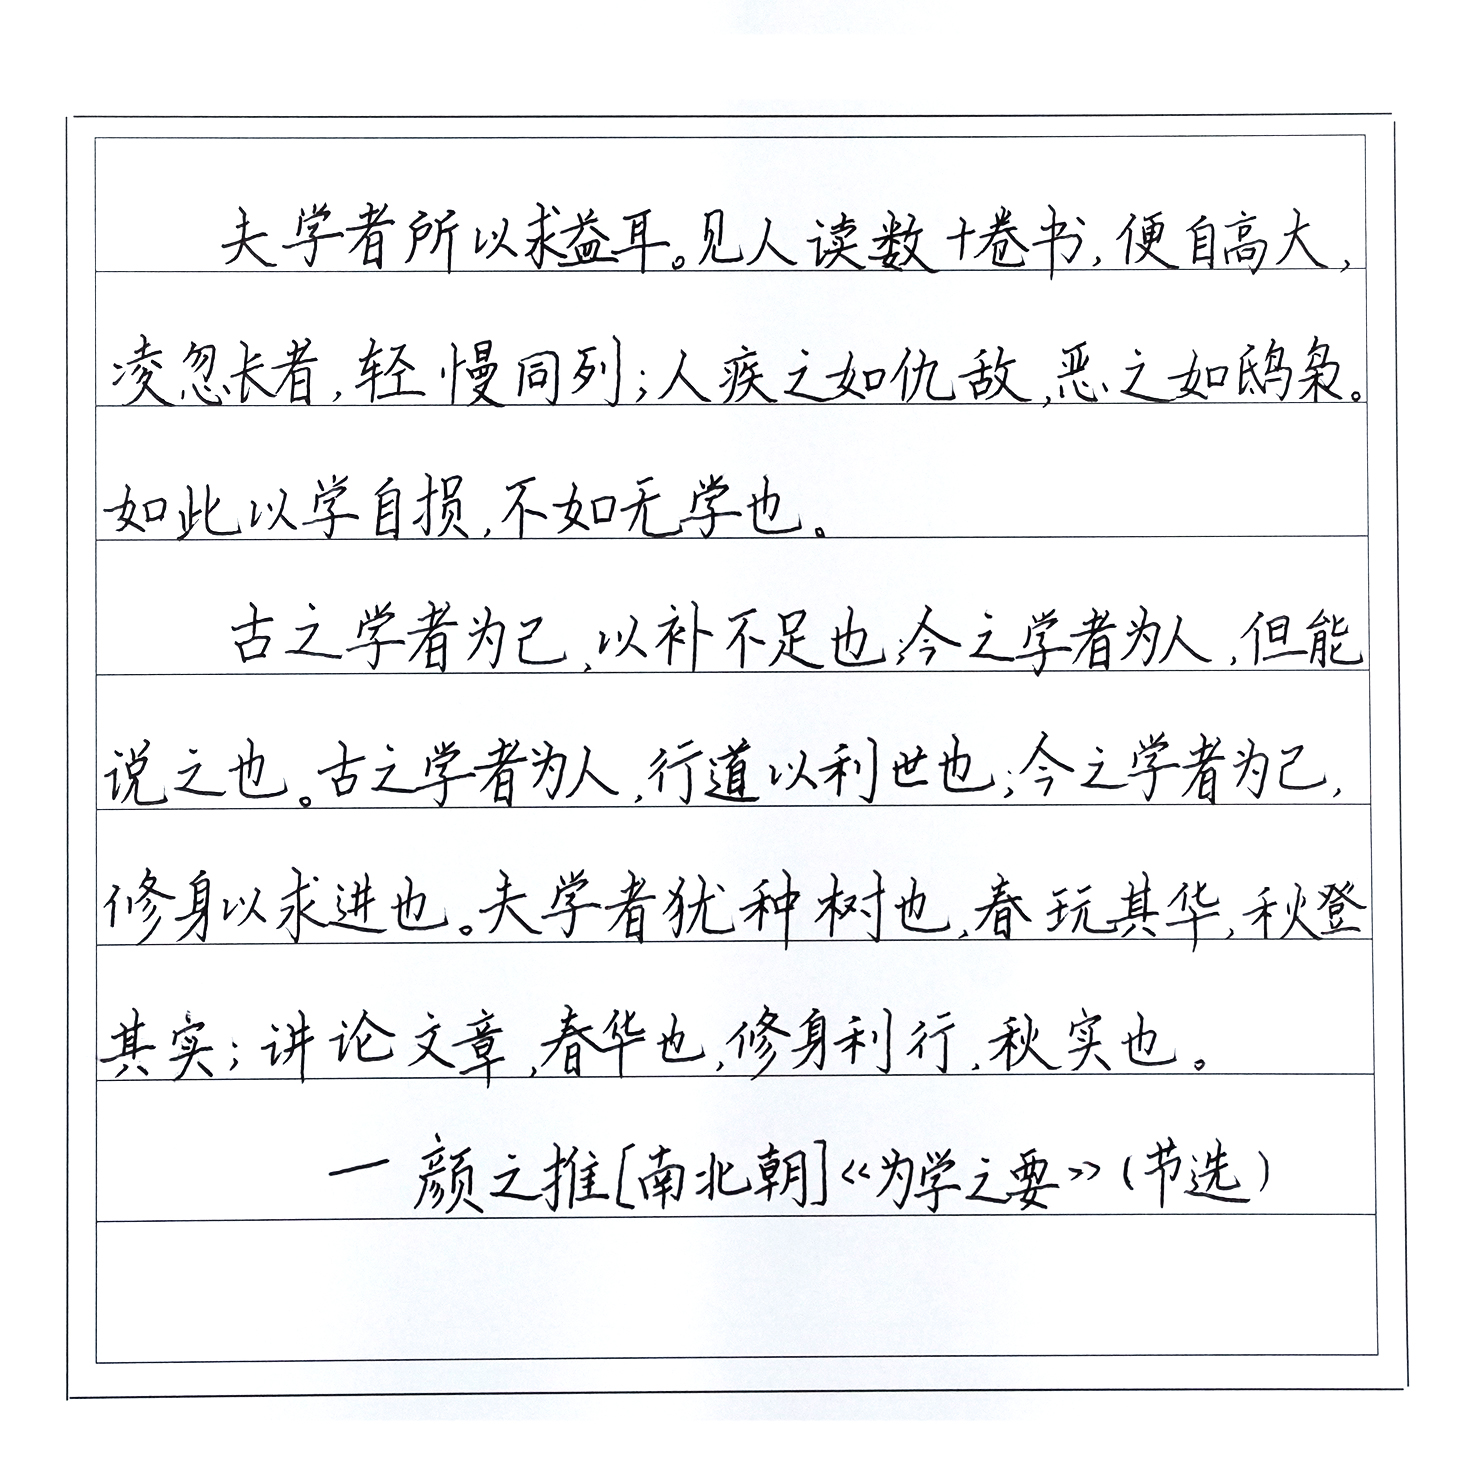 夫学者所以求益耳。见人读数十卷书,便自高大,
凌忽长者,轻慢同列;人疾之如仇敌,恶之如鸱枭。
如此以学自损,不如无学也。
古之学者为己,以补不足也;今之学者为人,但能
说之也。古之学者为人,行道以利世也;今之学者为己,
修身以求进也。夫学者犹种树也,春玩其华,秋登
其实;讲论文章,春华也,修身利行,秋实也。
一颜之推[南北朝]《为学之要》(节选)